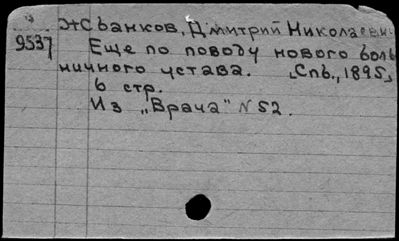 Жбанков, Дмитрий Николаевич
9537
Еще по поводу нового боль
ничного устава. „Спб., 1895„
6 стр.
Из „Врача" N 52.